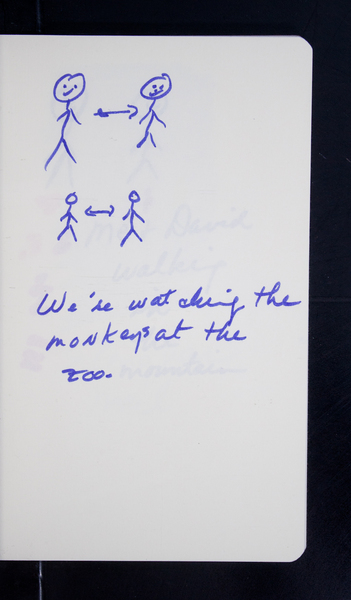 We're watching the
monkeys at the
zoo.